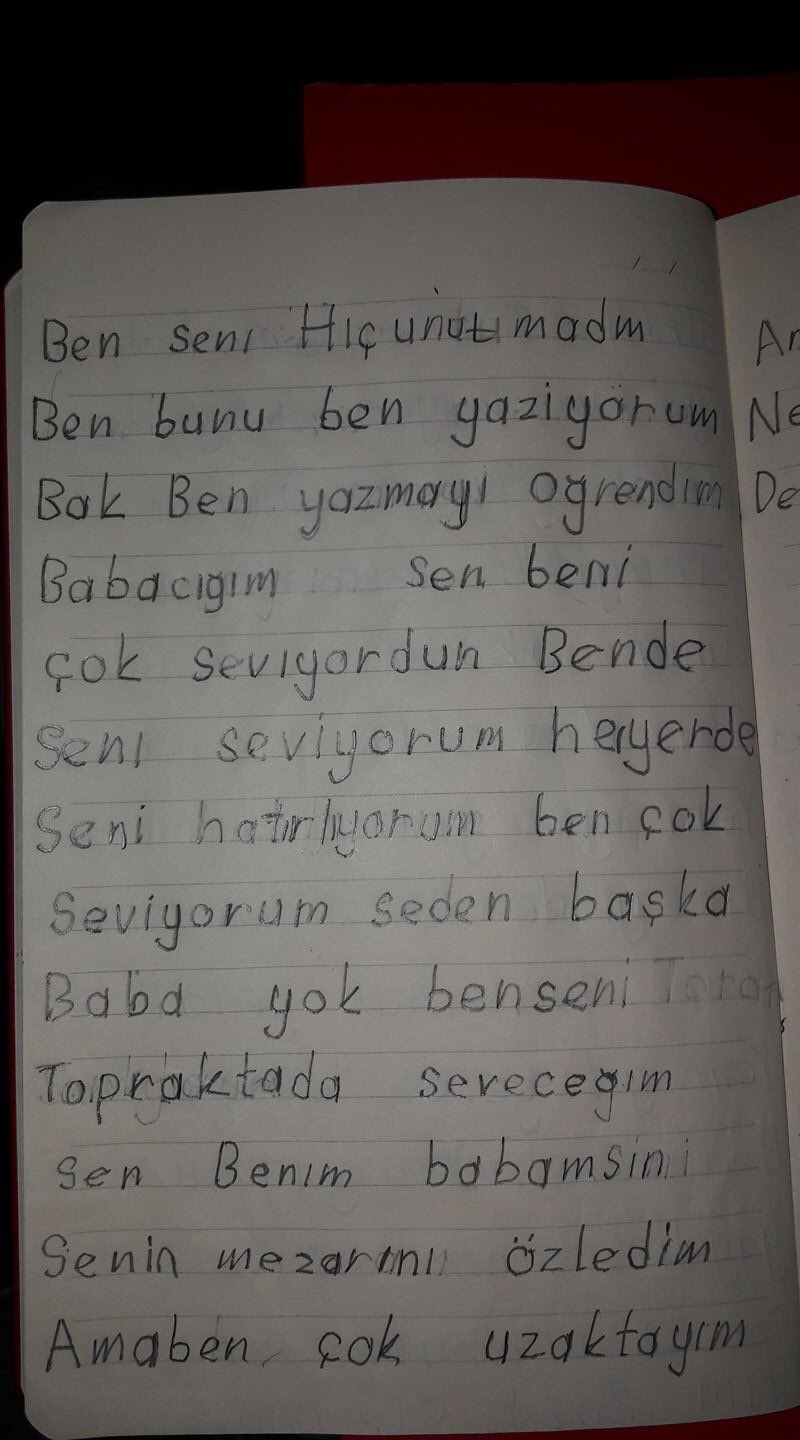 Ben senı Hıç unutımadm
Ben bunu ben yaziyorum Ne
Bak Ben yazmayı oğrendım De
Babacıgım sen beni
çok sevıyordun Bende
Senı seviyorum heryerde
Seni hatırlıyorum ben çok
Seviyorum seden başka
Baba yok benseni
Topraktada severecegım
sen Benım babamsin
Senin mezarını özledim
Amaben çok uzaktayım